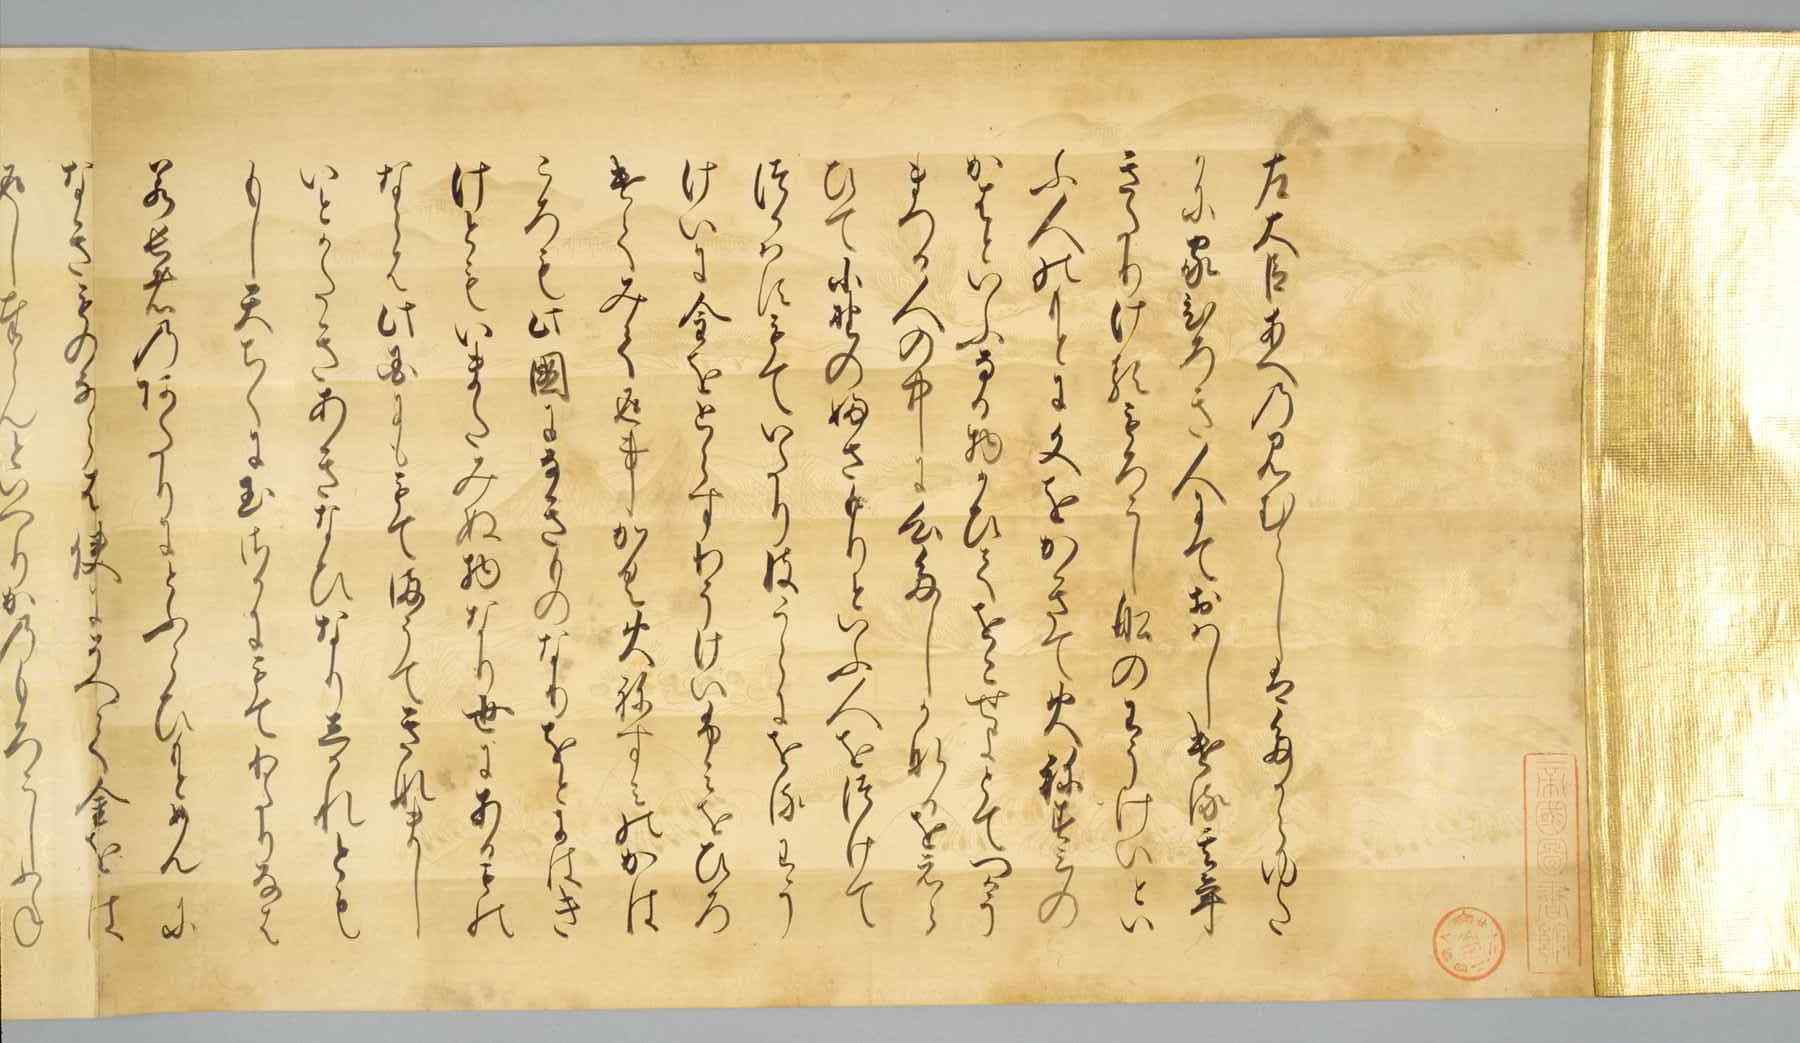 左大臣あへの見むらしはたからゆた
かに家ひろき人にておはしける其年
きたりけるもろこし船のわうけいとい
ふ人のもとに文をかきて火ねすみの
かはといふなる物かひてをこせよとてつかう
まつる人の中に心たしかなるをえら
ひて小野のふさもりといふ人をつけて
つかはすもていたり彼うらにをるわう
けいに金をとらすわうけいふみをひろ
けてみて返事かく火ねすみのかは
ころも此國になきものなりをとにはき
けともいまたみぬ物なり世にあるもの
ならは此国にももてまうてきなまし
いとかたきあきなひなりしかれとも
もし天ちくに玉さかにもてわたりなは
若長者のあたりにとふらひもとめんに
なきものならは使にそへて金をは
返し奉らんといへりかのもろこしふね
帝國圖書館藏